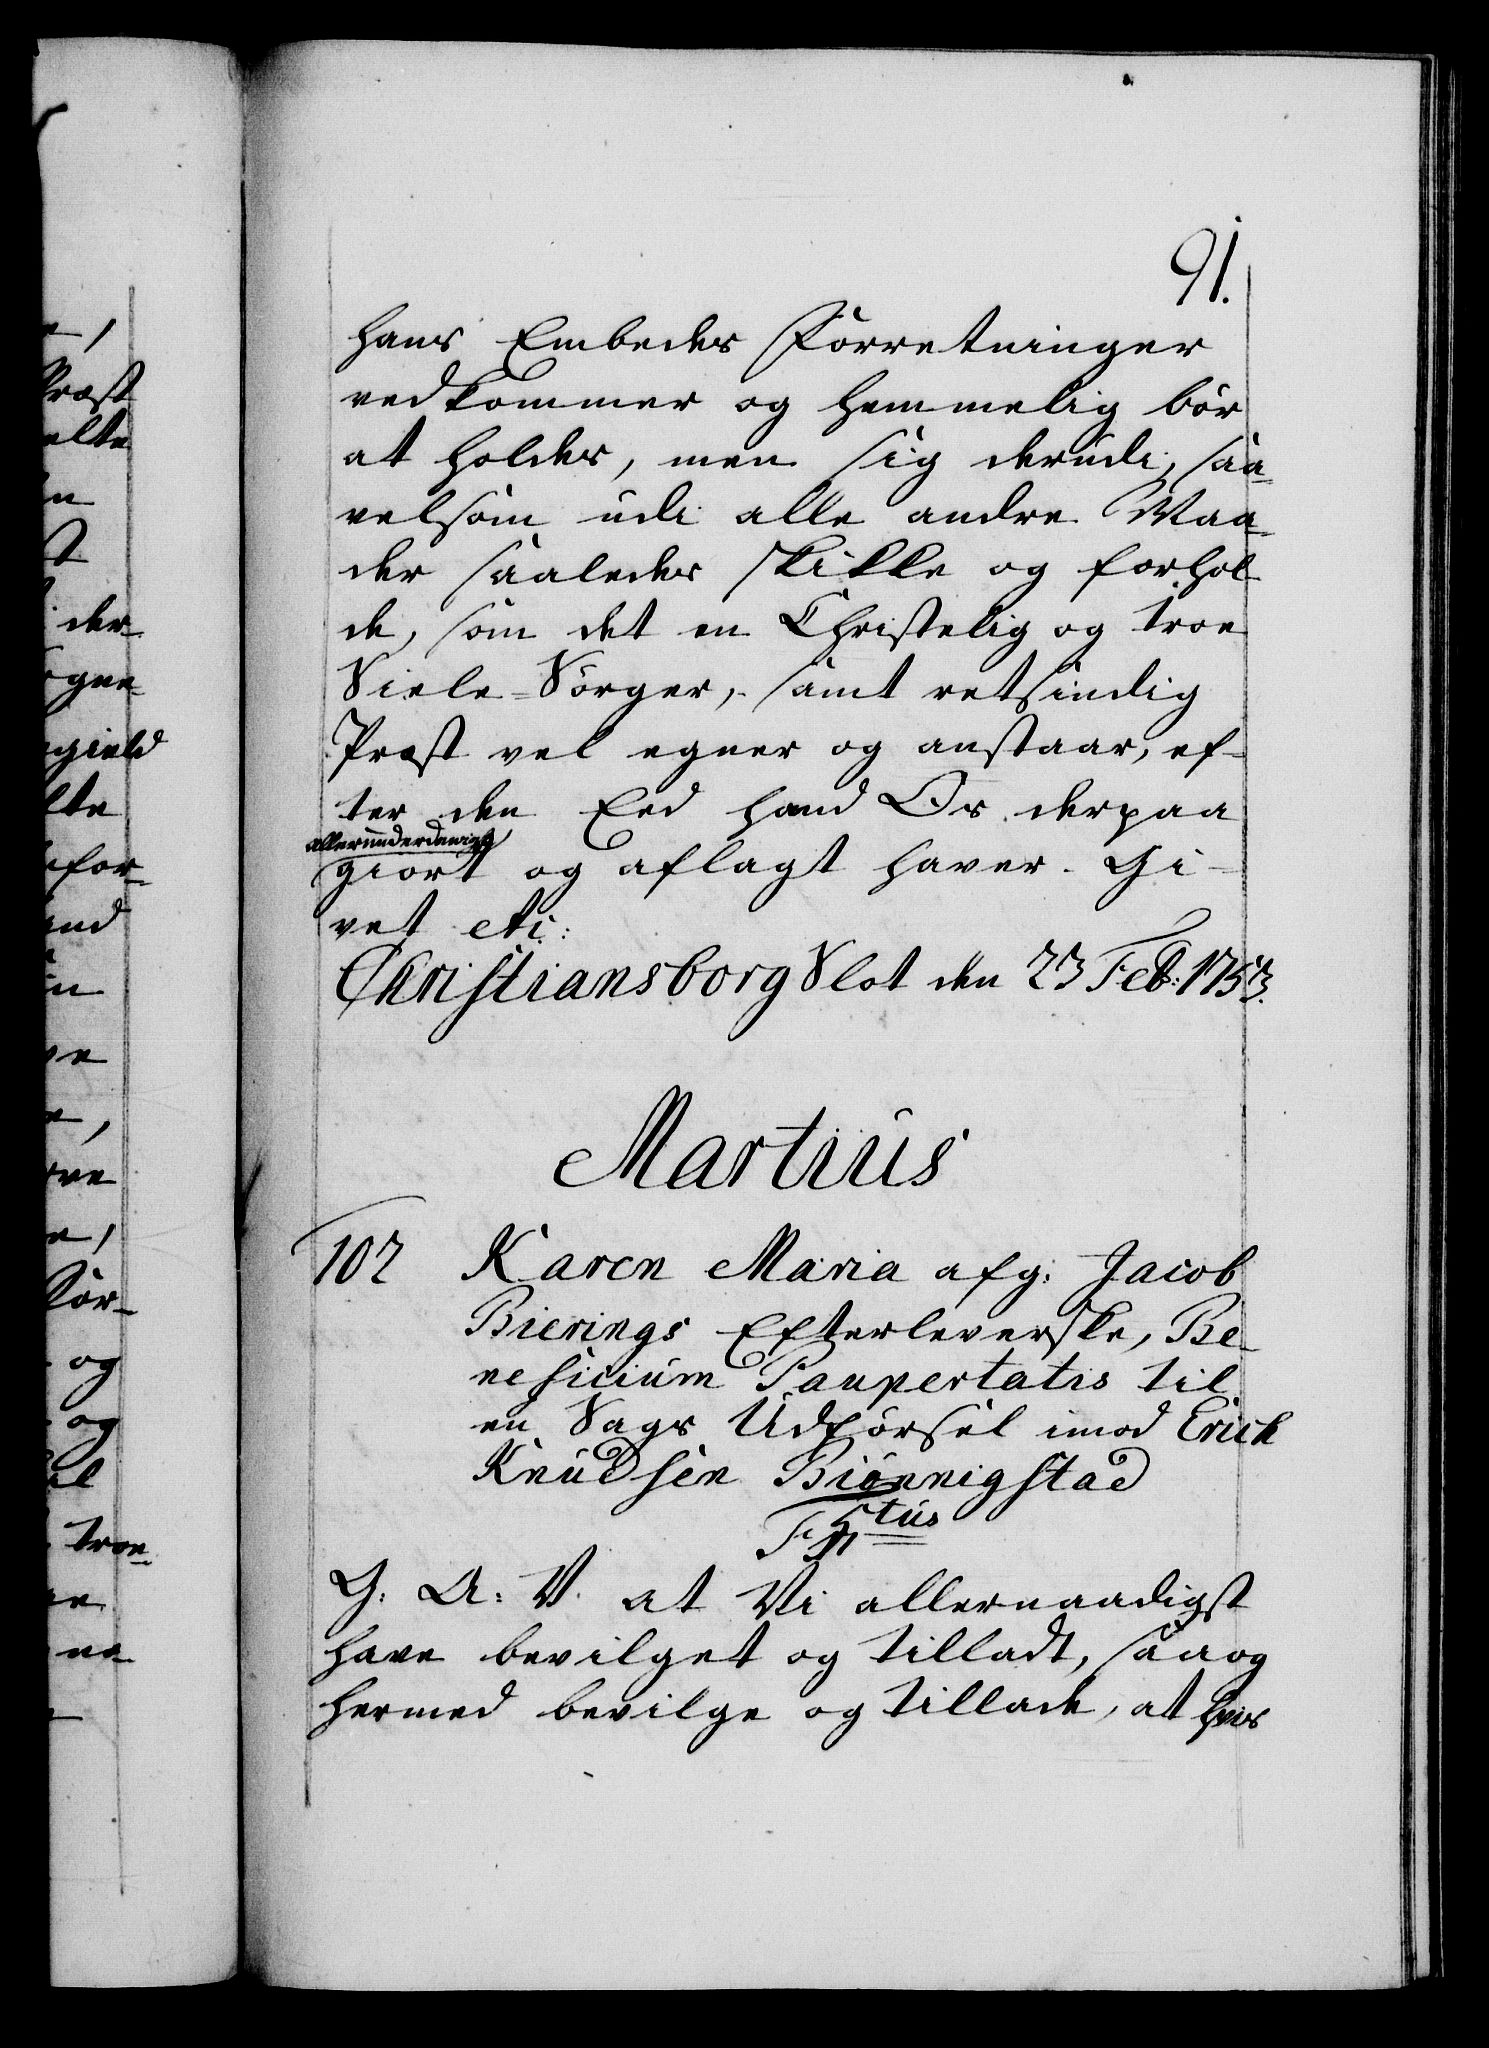 91.
hans Embedes Forretninger
vedkommer og hemmelig bör
at holdes, men sig derudi, saa=
velsom udi alle andre Maa=
der saaledes skikke og forhol=
de, som det en Christelig og troe
Siele=Sörger, samt retsindig
Præst vel egner og anstaar, ef=
ter den Eed hand Os derpaa
allerunderdanigst
giort og aflagt haver. Gi=
vet etc:
Christiansborg Slot den 23 Feb: 1753.
Martius
102 Karen Maria afg: Jacob
Bierings Efterleverske, Be=
neficium Paupertatis til
en Sags Udförsel imod Erich
Knudsen Biönnigstad
F 5tus
G: A: V. at Vi allernaadigst
have bevilget og tilladt, saa og
hermed bevilge og tillade, at hvis
e,
Præst
elte
en
st
der=
ogne
gield
lte
for=
and
in
ve
e,
rve
e,
For=
og
og
el
troe=
ne